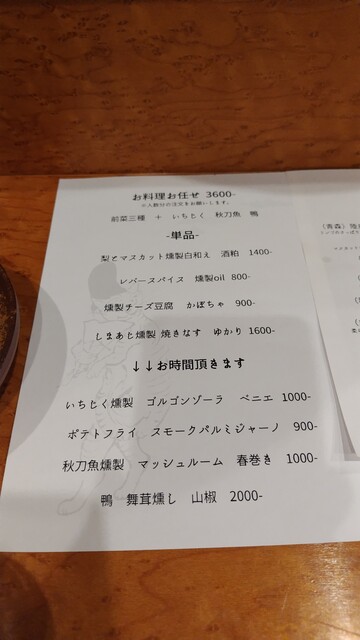 お料理お任せ 3600-
※人数分の注文をお願いします。
前菜三種 + いちじく 秋刀魚 鴨
-単品-
梨とマスカット燻製白和え 酒粕 1400-
レバースパイス 燻製oil 800-
燻製チーズ豆腐 かぼちゃ 900-
しまあじ燻製 焼きなす ゆかり 1600-
↓↓お時間頂きます
いちじく燻製 ゴルゴンゾーラ ベニエ 1000-
ポテトフライ スモークパルミジャーノ 900-
秋刀魚燻製 マッシュルーム 春巻き 1000-
鴨 舞茸燻し 山椒 2000-
(青森)